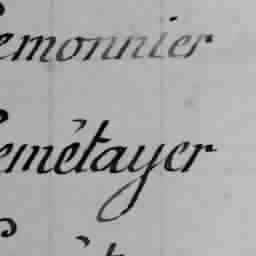 Lemonnier
Lemétayer